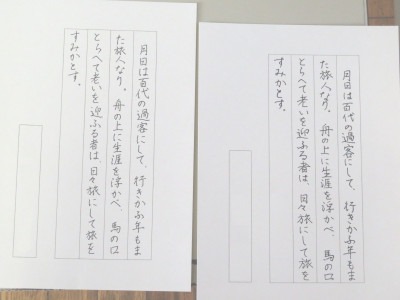 月日は百代の過客にして、行きかふ年もま
た旅人なり。舟の上に生涯を浮かべ、馬の口
とらへて老いを迎ふる者は、日々旅にして旅を
すみかとす。
月日は百代の過客にして、行きかふ年もま
た旅人なり。舟の上に生涯を浮かべ、馬の口
とらへて老いを迎ふる者は、日々旅にして旅を
すみかとす。